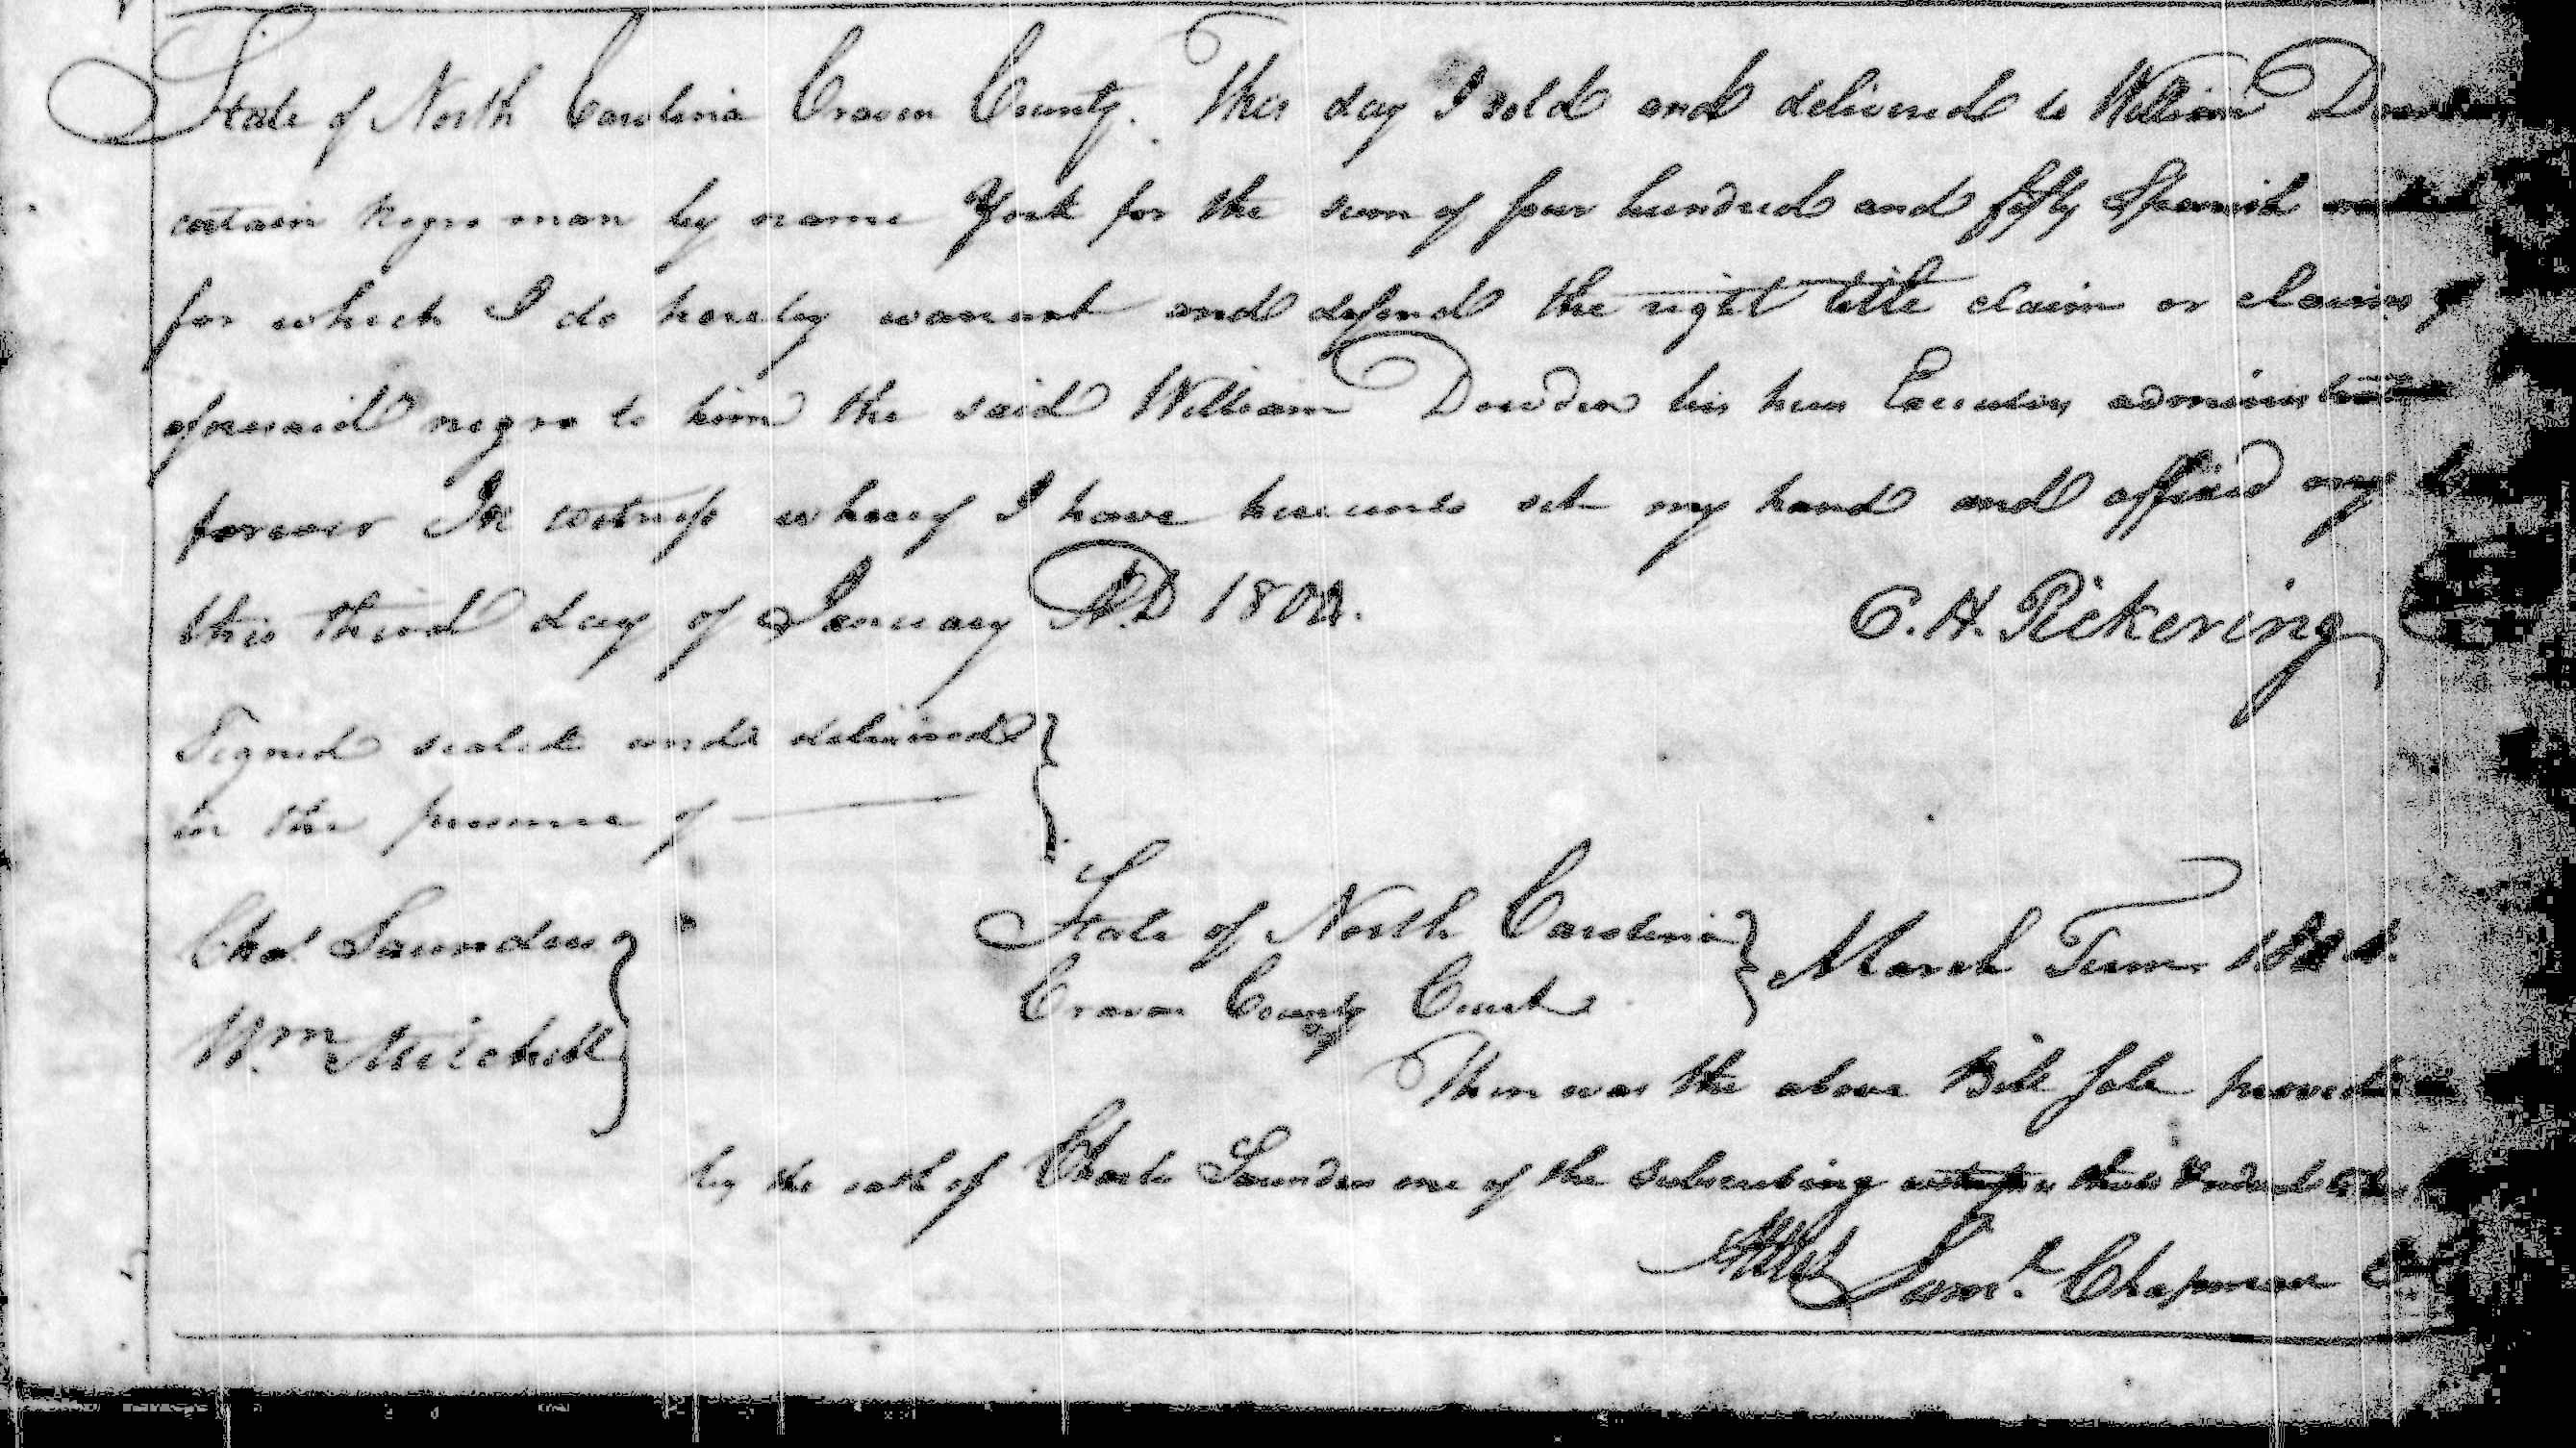 State of North Carolina Craven County. This day I sold and delivered to William
certain negro man by name York for the sum of four hundred and fifty Spanish
for which I do hereby warrant and defend the right title claim or claims of
aforesaid negro to him the said William Dowden his heirs Executors
forever In witness whereof I have hereunto set my hand and affixed my
this third day of January A.D
C.H. Pickering
Signed sealed and delivered
in the presence of
Chas. Saunders
Wm. Mitchell
State of North Carolina
Craven County Court
March Term
Then was the above Bill Sale proved
by the oath of Charles Saunders one of the subscribing
Attest Saml. Chapman